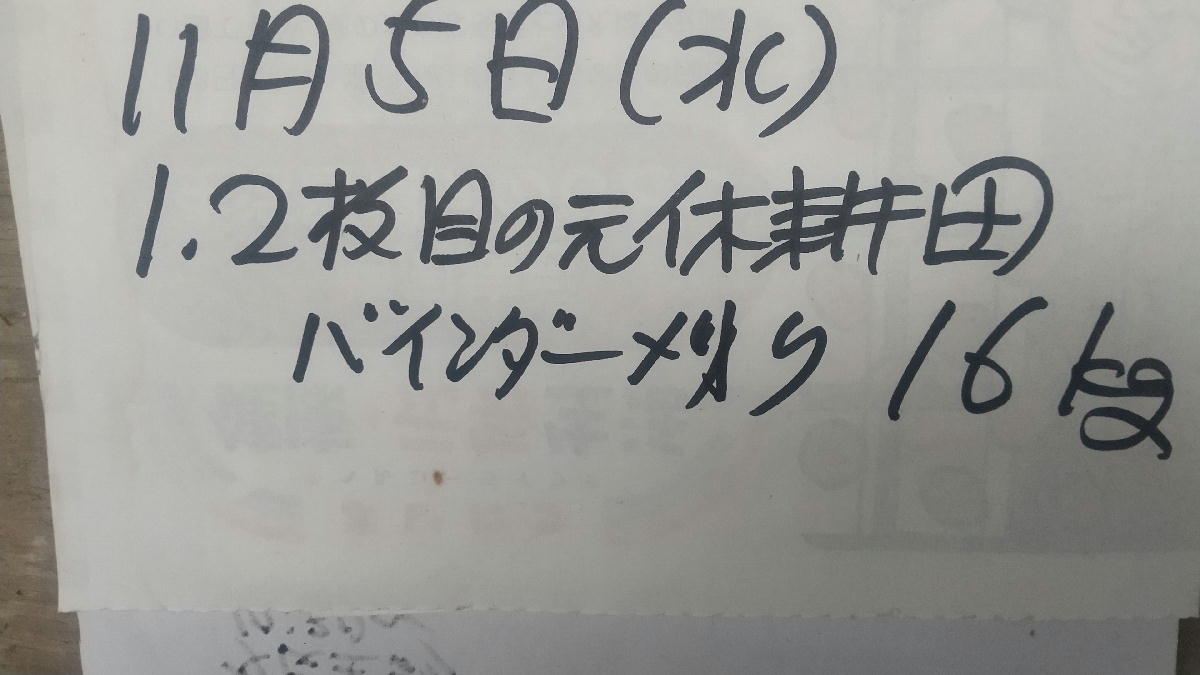 11月5日(水)
1.2枚目の元休耕田
バインダー刈り 16kg